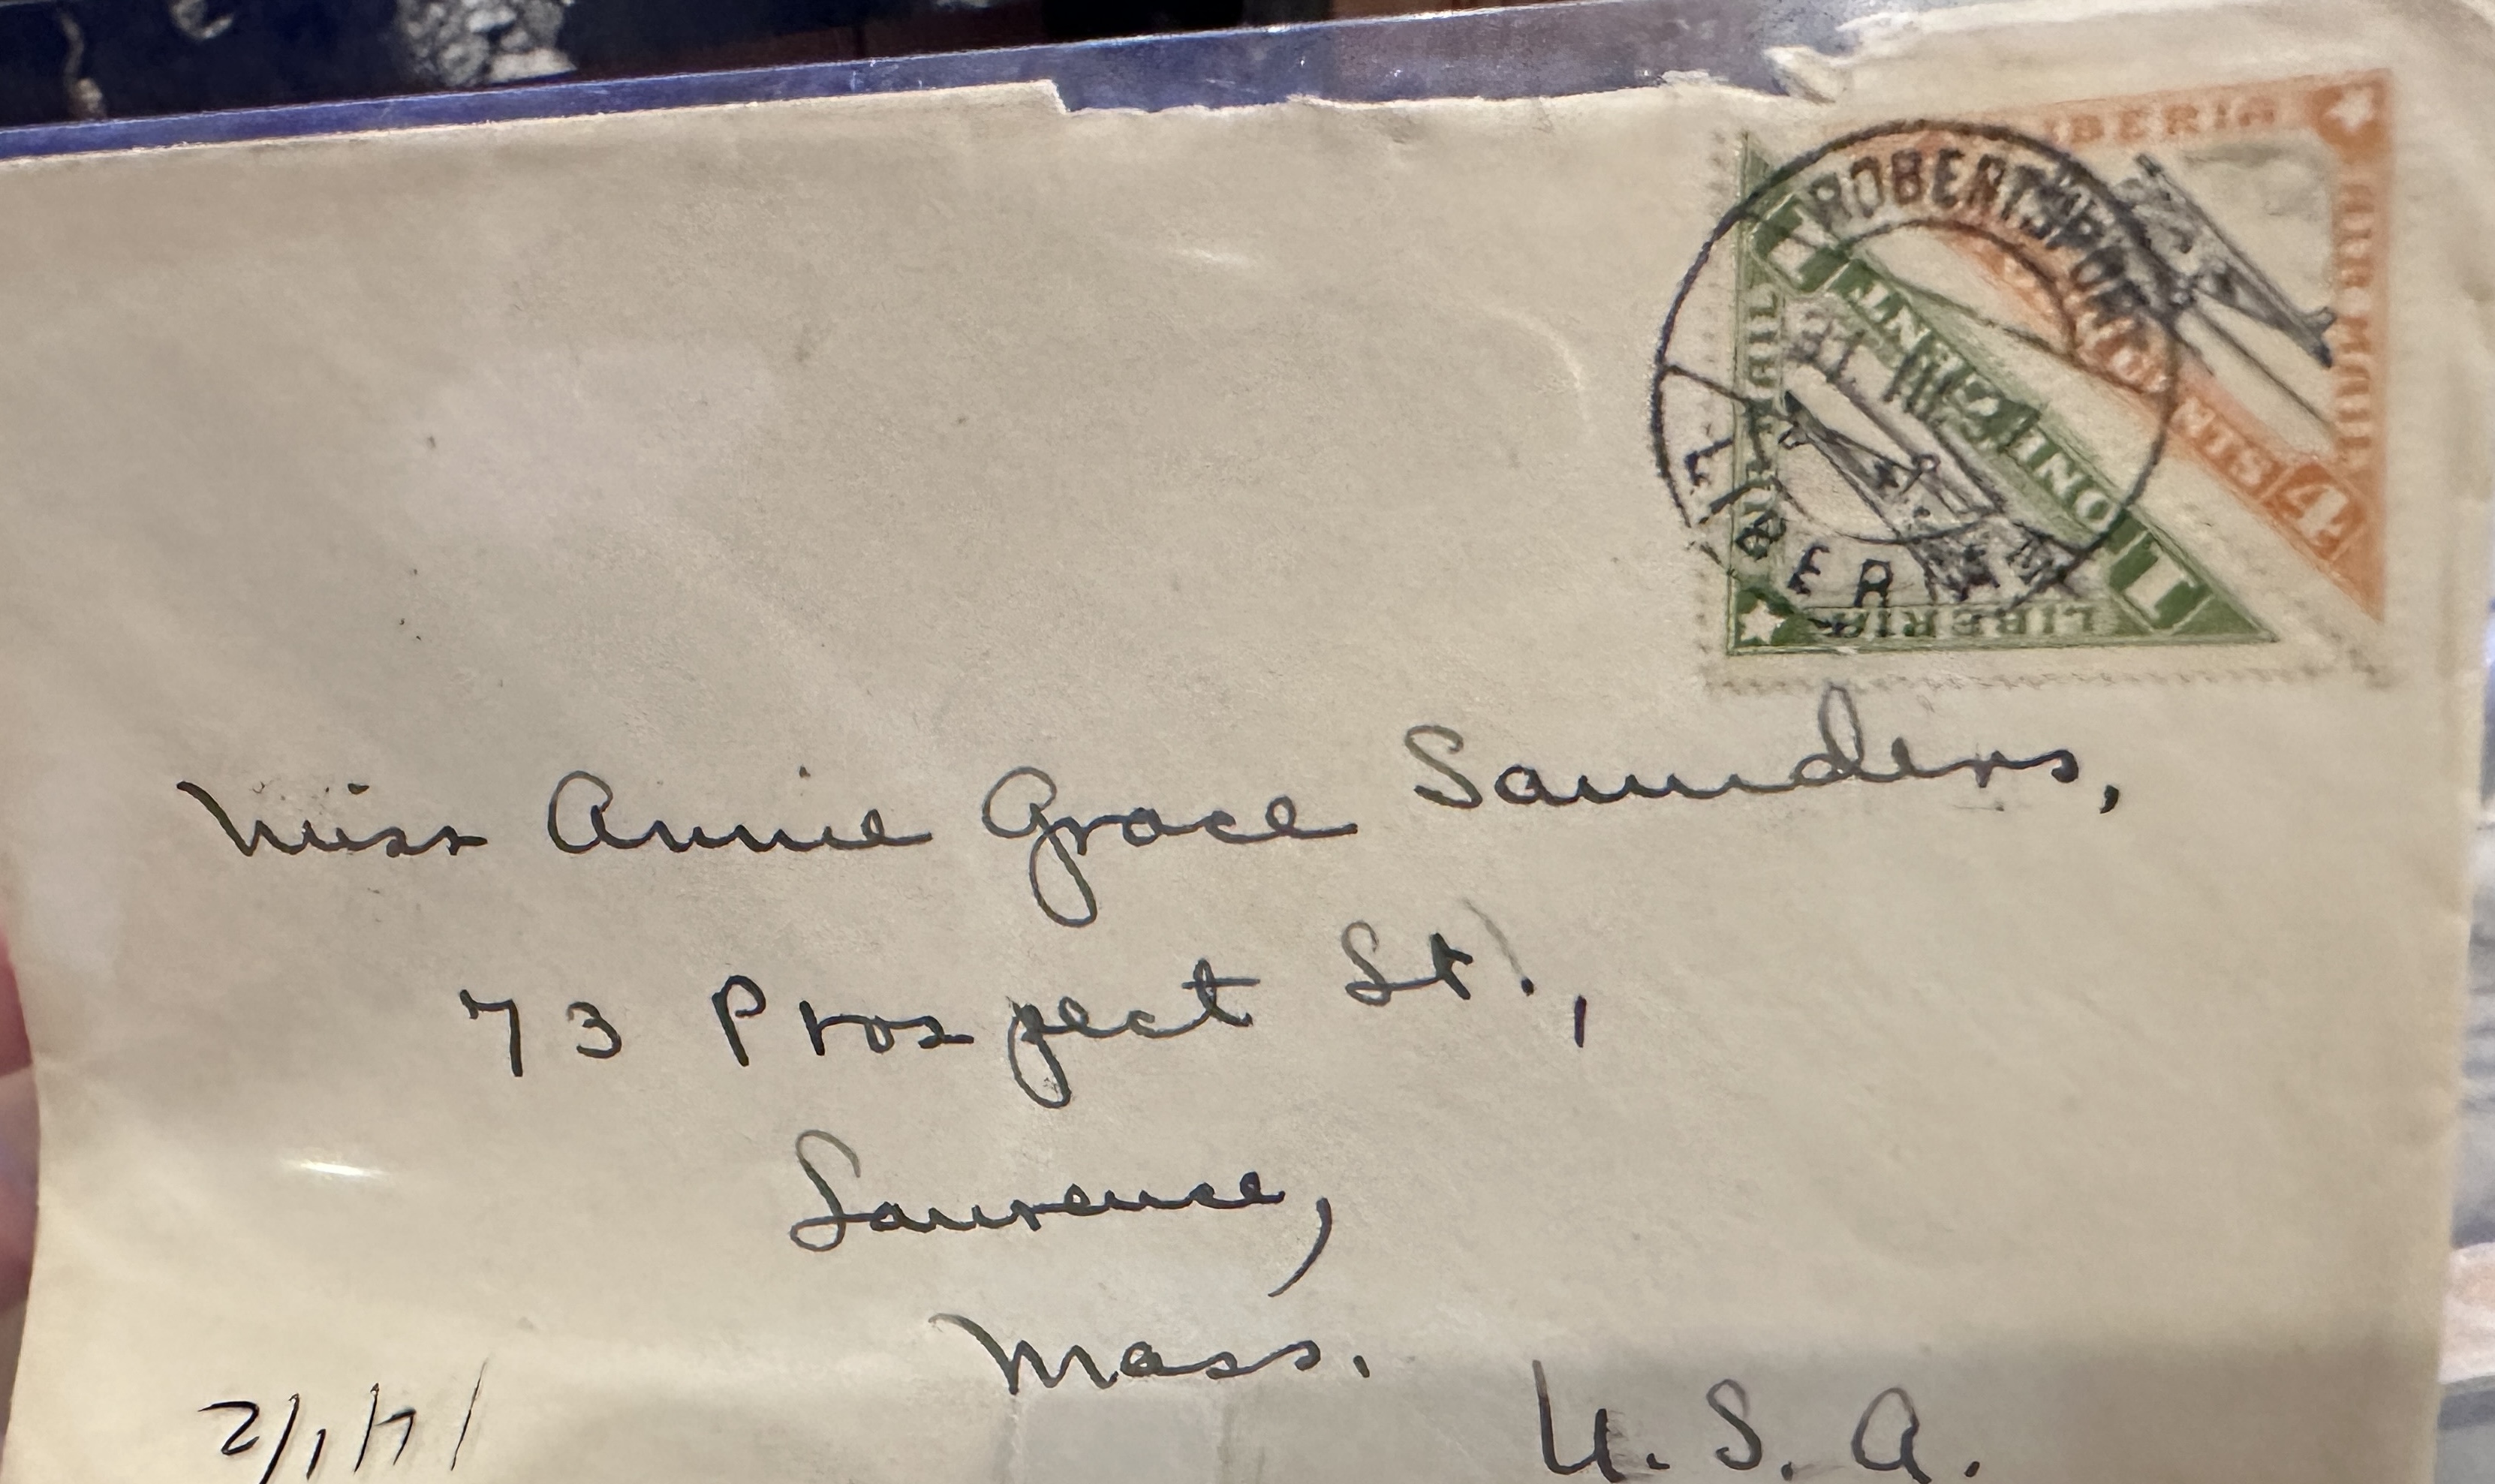 LIBERIA
AIR MAIL
CENTS 4
ROBERTSPORT
LIBERIA
1 ONE CENT 1
AIR MAIL
LIBERIA
Miss Annie Grace Saunders,
73 Prospect St.,
Lawrence,
Mass.
U.S.A.